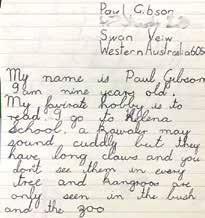 Paul Gibson
Swan Veiw
Western Australia 605
My name is Paul Gibson
I am nine years old.
My favirate hobby is to
read. I go to Helena
School. a kawaler may
sound cuddly but they
have long claws and you
don't see them in every
tree and kangroos are
only seen in the bush
and the zoo